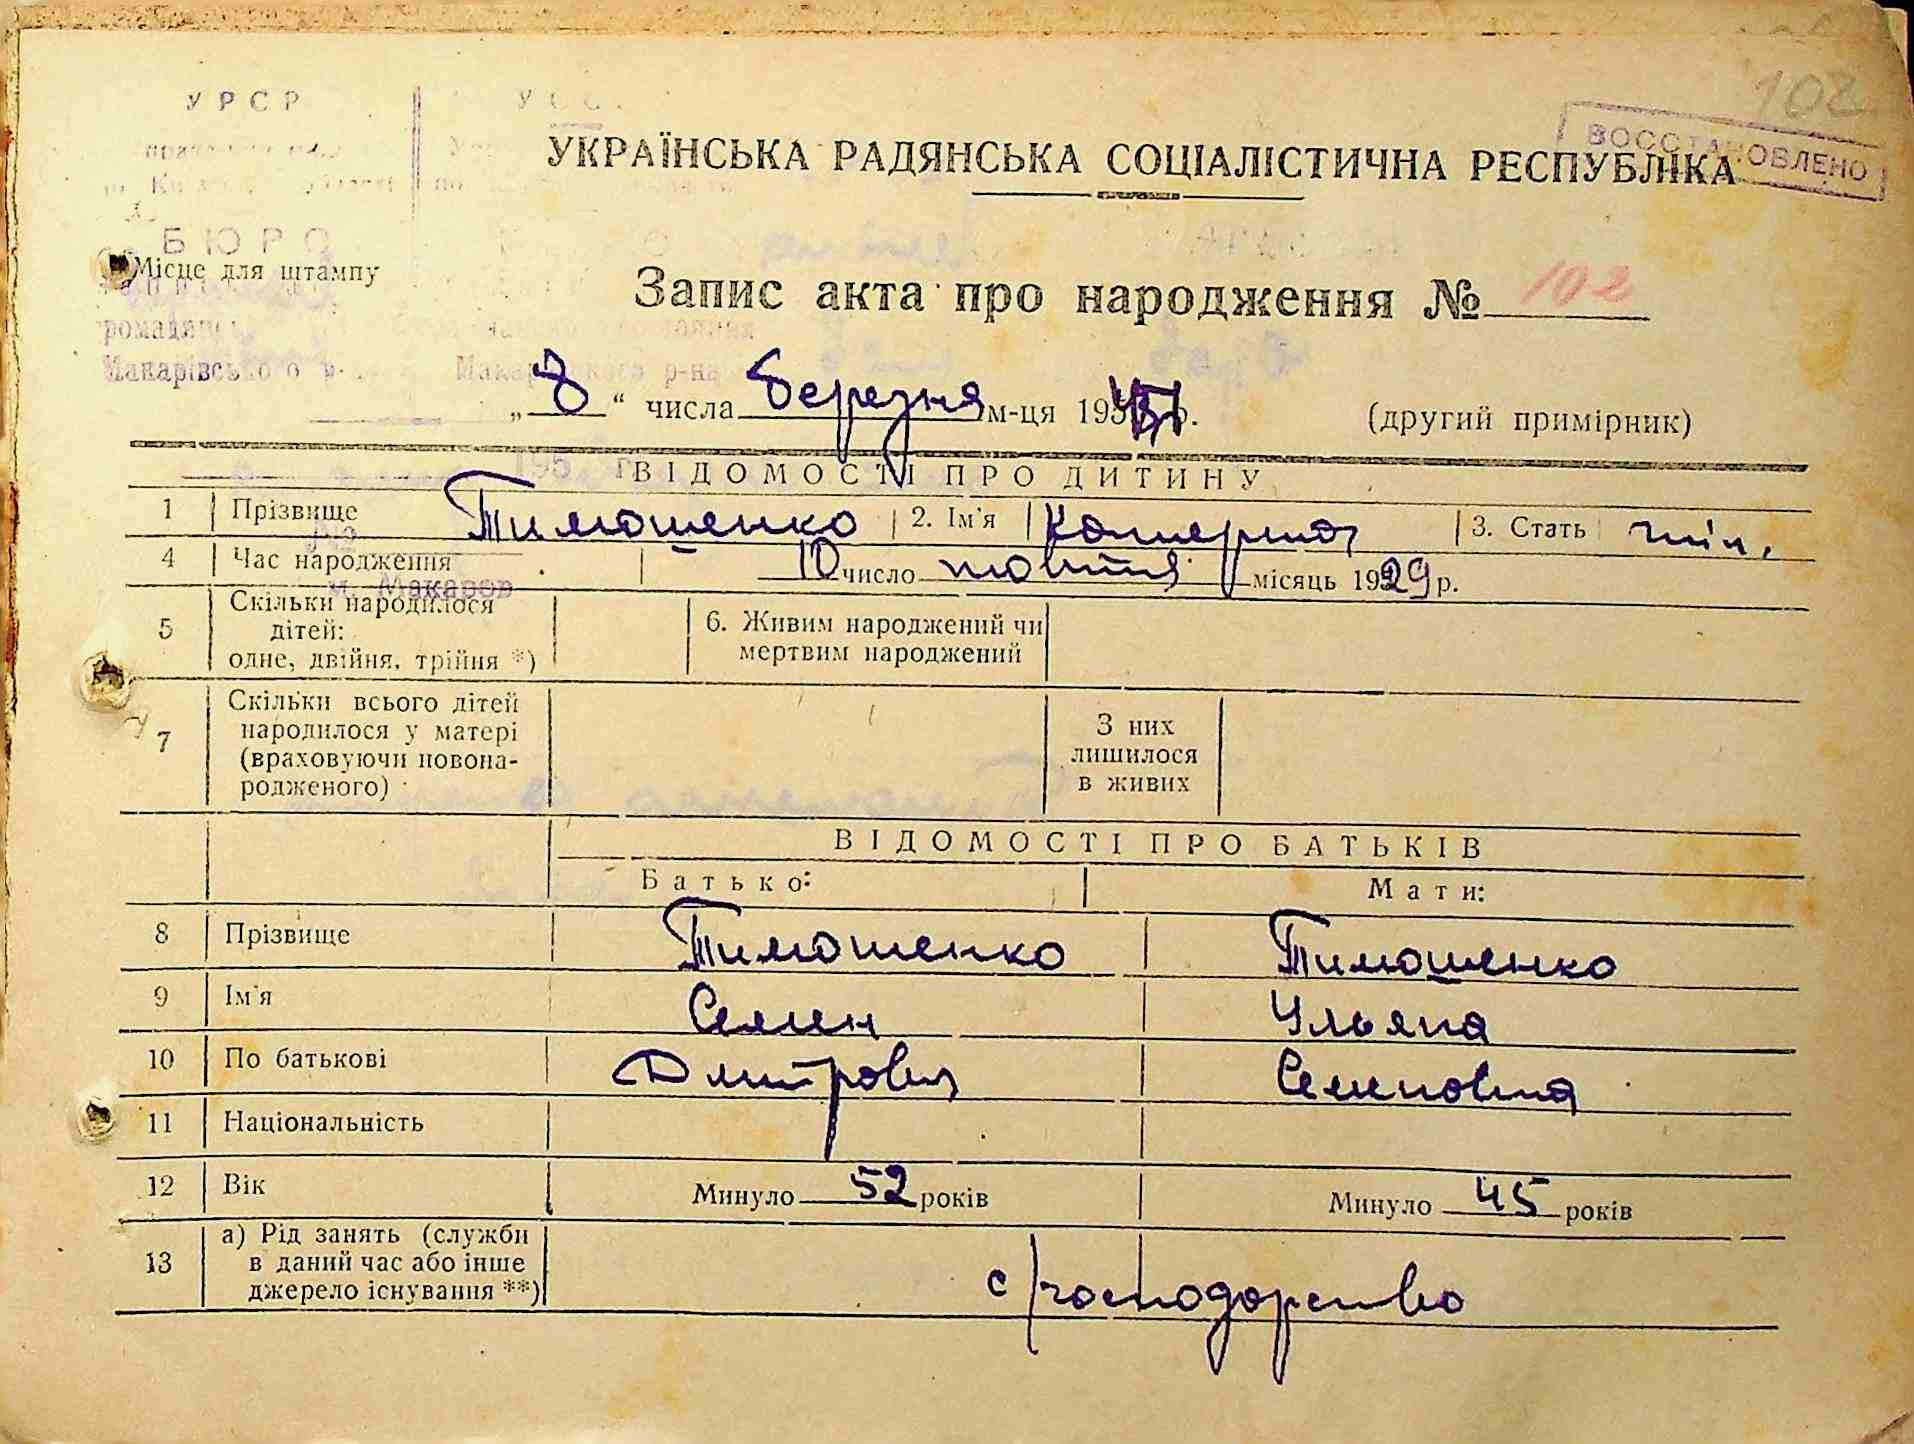 102
ВОССТАНОВЛЕНО
УРСР
УКРАЇНСЬКА РАДЯНСЬКА СОЦІАЛІСТИЧНА РЕСПУБЛІКА
БЮРО
Місце для штампу
Запис акта про народження № 102
Макарівського р-
„8“ числа березня м-ця 195 р. (другий примірник)
ВІДОМОСТІ ПРО ДИТИНУ
1 Прізвище Тимошенко 2. Ім'я Катерина 3. Стать жін.
4 Час народження 10 число жовтня місяць 1929 р.
м. Макаров
5 Скільки народилося
дітей:
одне, двійня, трійня *)
6. Живим народжений чи
мертвим народжений
7 Скільки всього дітей
народилося у матері
(враховуючи новона-
родженого)
З них
лишилося
в живих
ВІДОМОСТІ ПРО БАТЬКІВ
Батько: Мати:
8 Прізвище Тимошенко Тимошенко
9 Ім'я Семен Ульяна
10 По батькові Дмитрович Семеновна
11 Національність
12 Вік Минуло 52 років Минуло 45 років
13 а) Рід занять (служби
в даний час або інше
джерело існування **)
с/господарство